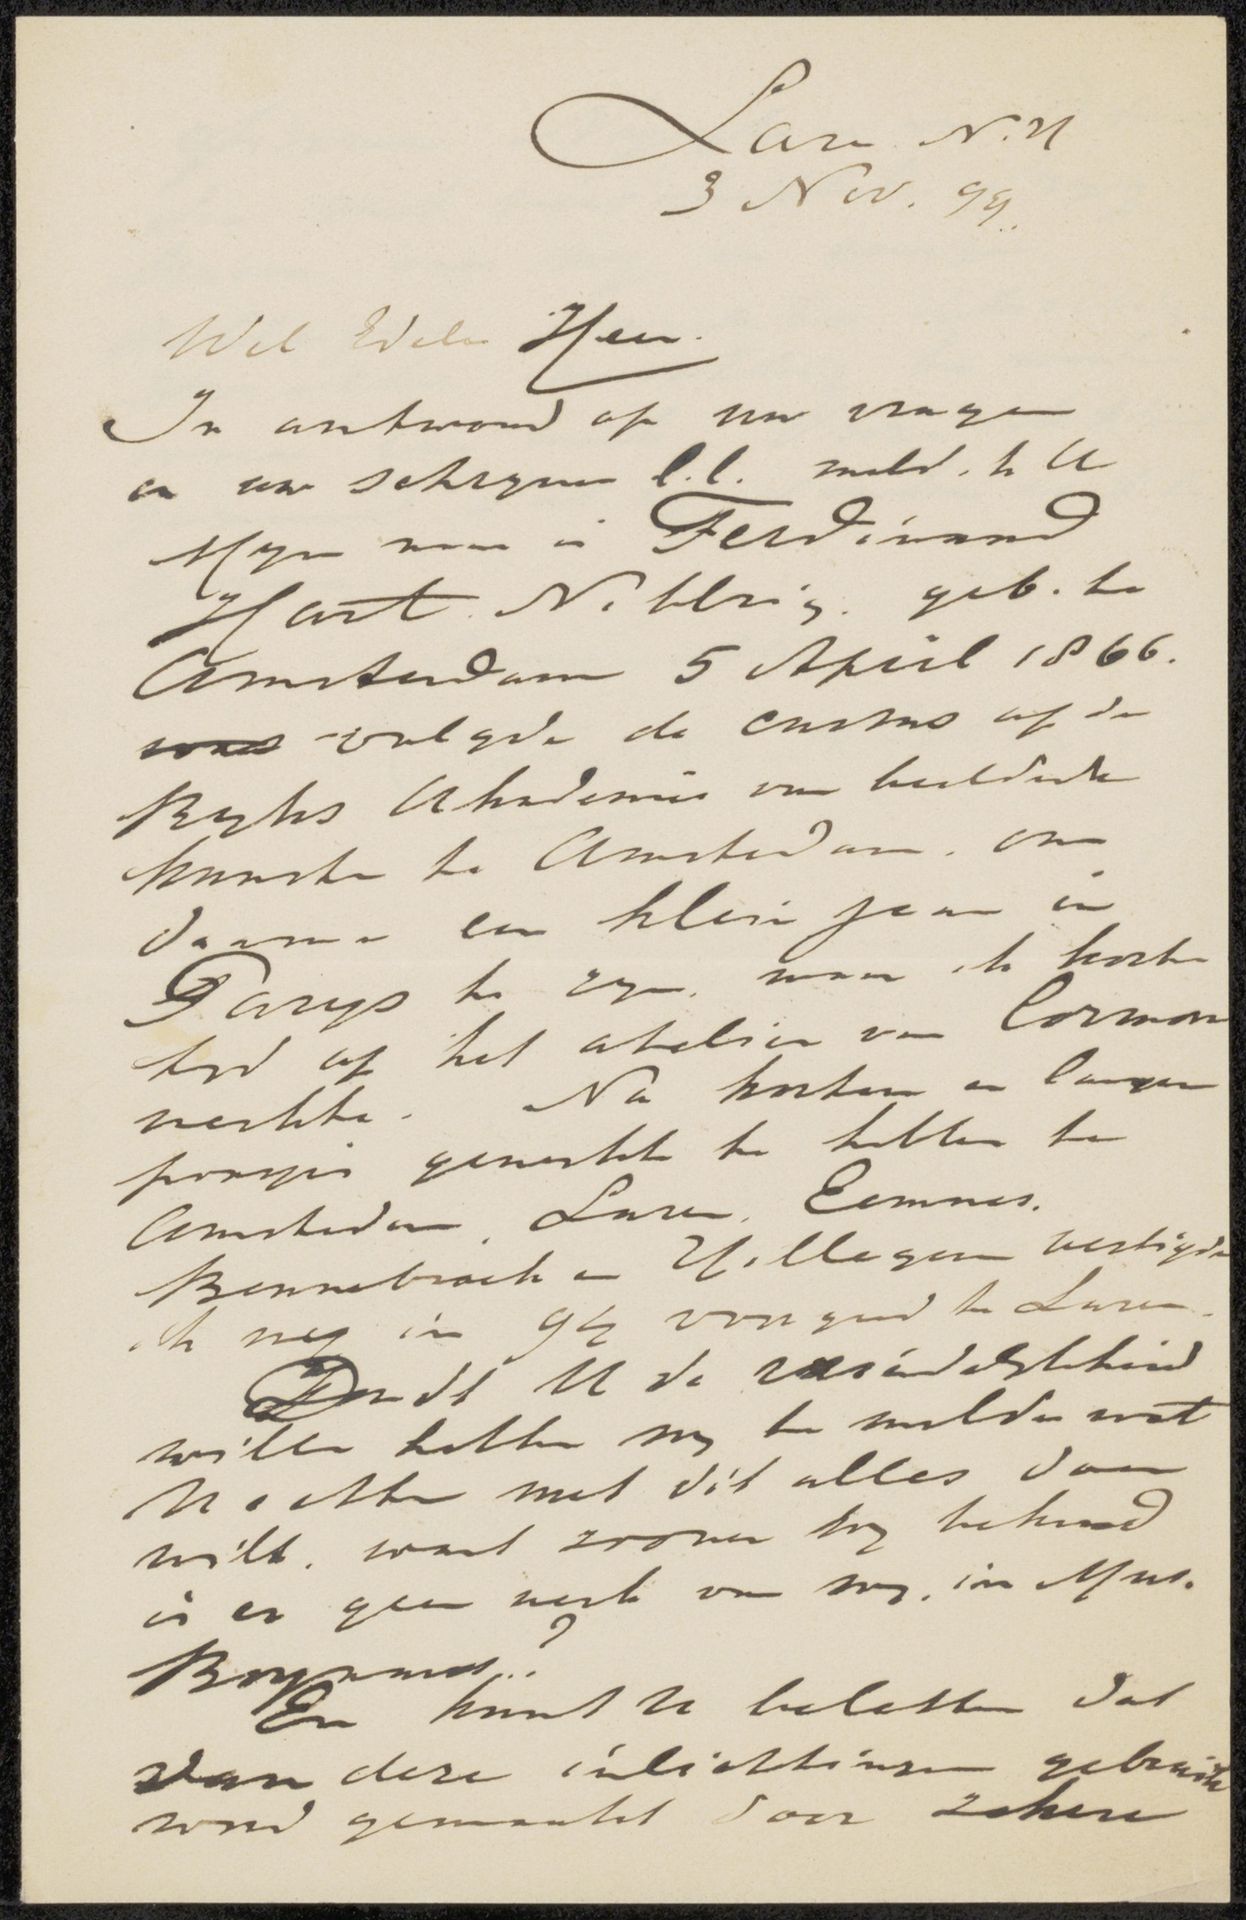 Laren N.H
3 Nov. 99.
Wel Edele Heer.
In antwoord op uw vragen
en uw schrijven l.l. meld ik U
Mijn naam is Ferdinand
Hart Nibbrig. geb. te
Amsterdam 5 April 1866.
volgde de cursus op de
Rijks Akademie van beeldende
kunsten te Amsterdam. om
daarna een klein jaar in
Parijs te zijn. waar ik korten
tijd op het atelier van Cormon
werkte. Na korter en langer
poosjes gewerkt te hebben te
Amsterdam, Laren, Eemnes.
Bennebroek en Hillegom vestigde
ik mij in 94 voorgoed te Laren.
Zoudt U de vriendelijkheid
willen hebben mij te melden wat
U echter met dit alles doen
wilt. want zoover mij bekend
is er geen werk van mij. in Mus.
Boymans..?
En kunt U beletten dat
van deze inlichtingen gebruik
word gemaakt door zekere